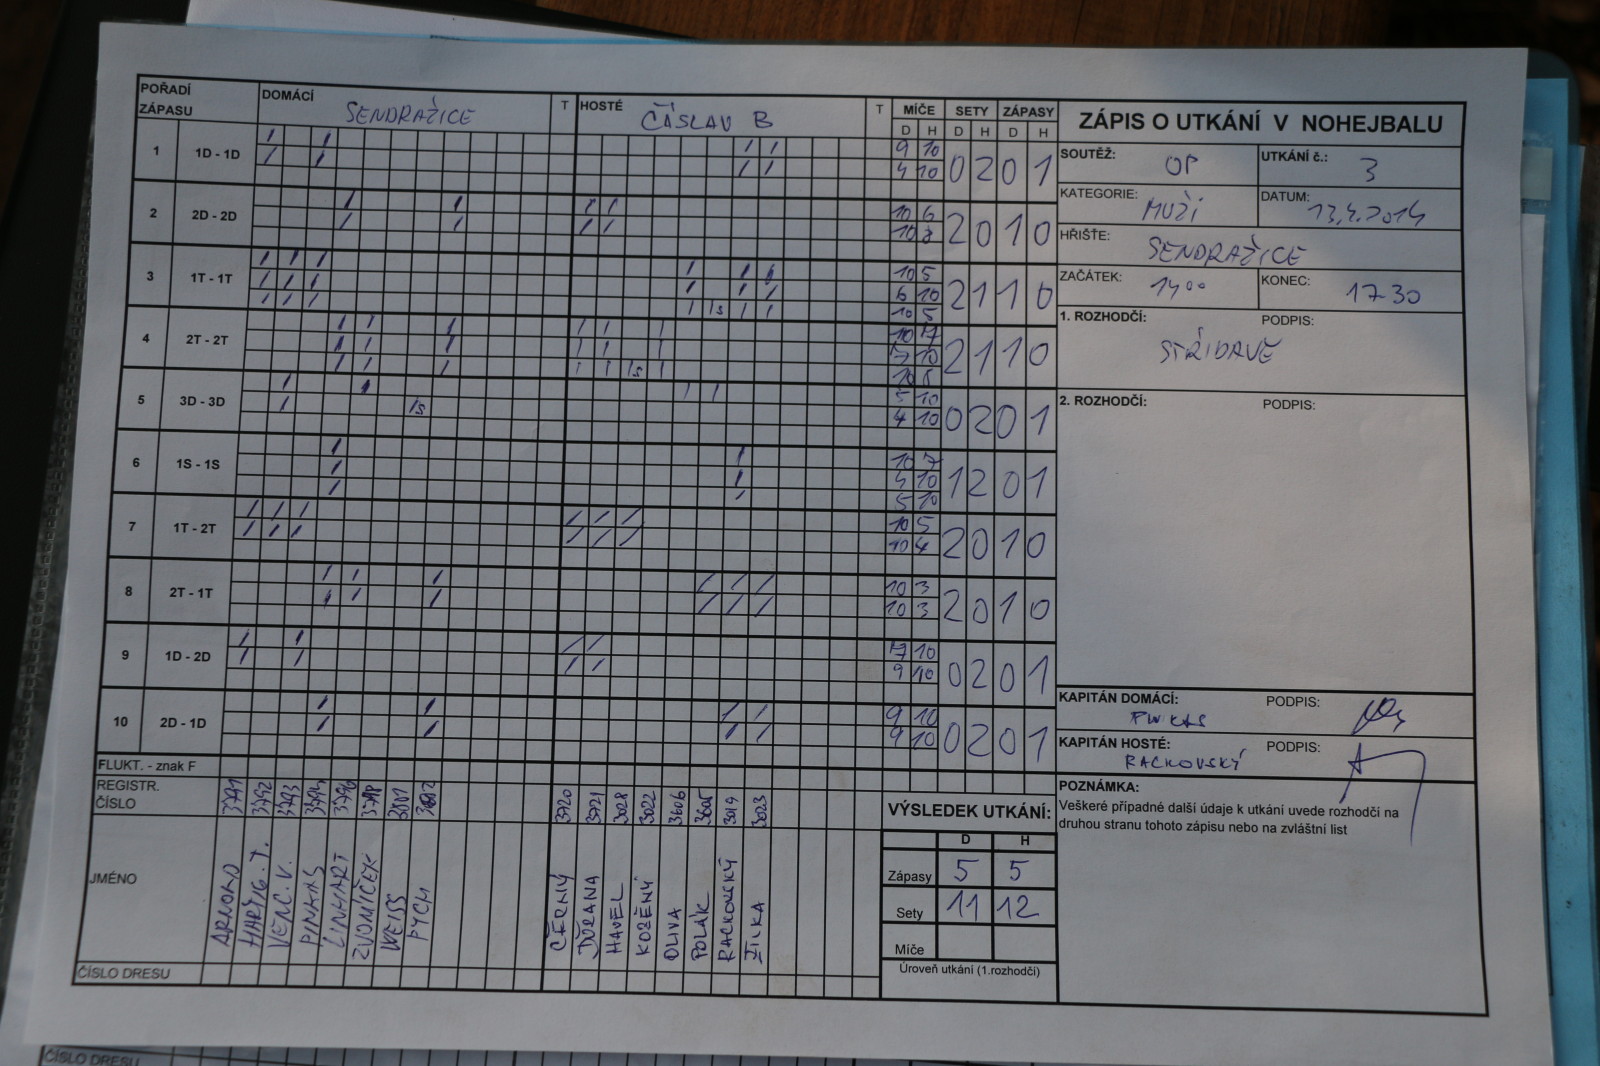 POŘADÍ ZÁPASU DOMÁCÍ SENDRAŽICE T HOSTÉ ČÁSLAV B T MÍČE SETY ZÁPASY
D H D H D H
1 1D - 1D 9 10 0 2 0 1
4 10
2 2D - 2D 10 6 2 0 1 0
10 8
3 1T - 1T 10 5 2 1 1 0
6 10
1s 10 5
4 2T - 2T 10 7 2 1 1 0
7 10
1s 10 8
5 3D - 3D 5 10 0 2 0 1
1s 4 10
6 1S - 1S 10 7 1 2 0 1
4 10
5 10
7 1T - 2T 10 5 2 0 1 0
10 4
8 2T - 1T 10 3 2 0 1 0
10 3
9 1D - 2D 7 10 0 2 0 1
9 10
10 2D - 1D 9 10 0 2 0 1
9 10
FLUKT. - znak F
REGISTR. ČÍSLO 3791 3792 3793 3794 3796 3020 3021 3028 3022 3606 3605 3019 3023
JMÉNO ARNOLD VENC. V. PINKAS LINHART ZVOMÍČEK WEISS PYCH ČERNÝ HAVEL KOŽENÝ OLIVA POLÁK RACKOVSKÝ ŽILKA
ČÍSLO DRESU
ZÁPIS O UTKÁNÍ V NOHEJBALU
SOUTĚŽ: OP UTKÁNÍ č.: 3
KATEGORIE: MUŽI DATUM: 13.4.2014
HŘIŠTE: SENDRAŽICE
ZAČÁTEK: 14 00 KONEC: 17 30
1. ROZHODČÍ: PODPIS:
STŘÍDAVĚ
2. ROZHODČÍ: PODPIS:
KAPITÁN DOMÁCÍ: PODPIS:
PINKAS
KAPITÁN HOSTÉ: PODPIS:
RACKOVSKÝ
POZNÁMKA:
Veškeré případné další údaje k utkání uvede rozhodčí na
druhou stranu tohoto zápisu nebo na zvláštní list
VÝSLEDEK UTKÁNÍ:
D H
Zápasy 5 5
Sety 11 12
Míče
Úroveň utkání (1.rozhodčí)
ČÍSLO DRESU